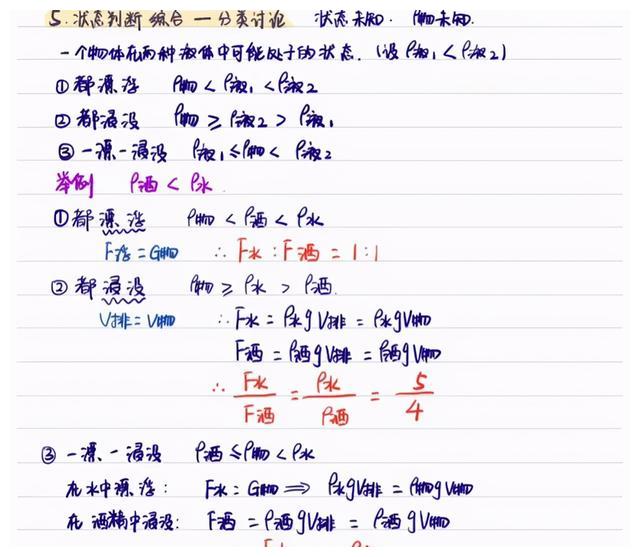 5. 状态判断综合 — 分类讨论 状态未知. ρ物未知.
一个物体在两种液体中可能处于的状态. (设 ρ液₁ < ρ液₂)
① 都漂浮 ρ物 < ρ液₁ < ρ液₂
② 都浸没 ρ物 ≥ ρ液₂ > ρ液₁
③ 一漂一浸没 ρ液₁ ≤ ρ物 < ρ液₂
举例 ρ酒 < ρ水.
① 都漂浮 ρ物 < ρ酒 < ρ水
F浮 = G物 ∴ F水 : F酒 = 1 : 1
② 都浸没 ρ物 ≥ ρ水 > ρ酒.
V排 = V物 ∴ F水 = ρ水gV排 = ρ水gV物
F酒 = ρ酒gV排 = ρ酒gV物
∴ F水/F酒 = ρ水/ρ酒 = 5/4
③ 一漂、一浸没 ρ酒 ≤ ρ物 < ρ水
在水中漂浮: F水 = G物 ⟹ ρ水gV排 = ρ物gV物
在酒精中浸没: F酒 = ρ酒gV排 = ρ酒gV物